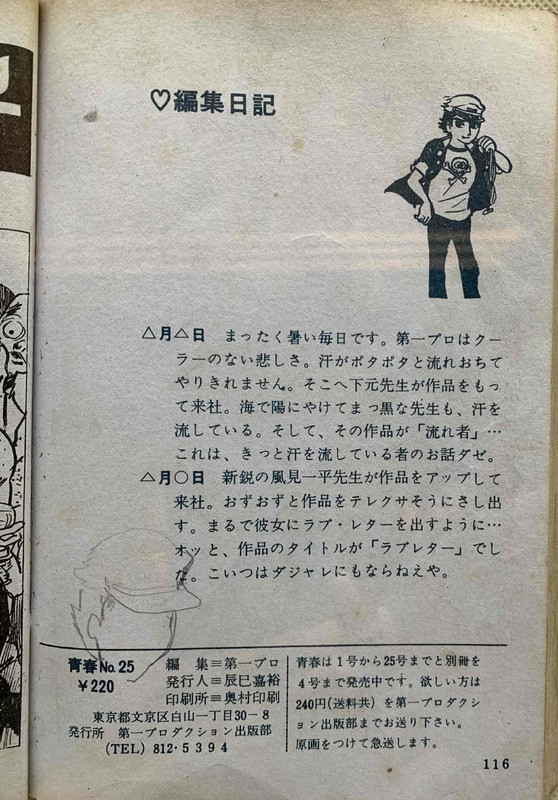 ♡編集日記
△月△日　まったく暑い毎日です。第一プロはクー
ラーのない悲しさ。汗がポタポタと流れおちて
やりきれません。そこへ下元先生が作品をもっ
て来社。海で陽にやけてまっ黒な先生も、汗を
流している。そして、その作品が「流れ者」…
これは、きっと汗を流している者のお話ダゼ。
△月○日　新鋭の風見一平先生が作品をアップして
来社。おずおずと作品をテレクサそうにさし出
す。まるで彼女にラブ・レターを出すように…
オッと、作品のタイトルが「ラブレター」でし
た。こいつはダジャレにもならねえや。
青春No.25
￥220
編　集≡第一プロ
発行人≡辰巳嘉裕
印刷所≡奥村印刷
東京都文京区白山一丁目30－8
発行所　第一プロダクション出版部
(TEL) 812・5394
青春は1号から25号までと別冊を
4号まで発売中です。欲しい方は
240円(送料共)を第一プロダクシ
ョン出版部までお送り下さい。
原画をつけて急送します。
116